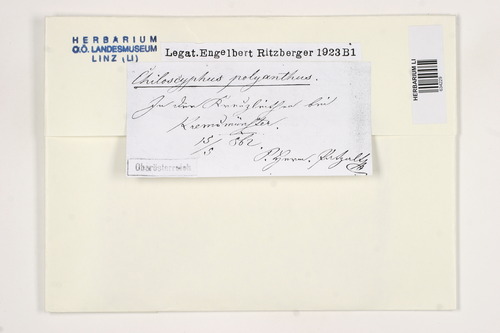 HERBARIUM
O.Ö. LANDESMUSEUM
LINZ (LI)
Legat. Engelbert Ritzberger 1923 B1
HERBARIUM LI
Chiloscyphus polyanthus.
In der Kreuzleithen bei
Kremsmünster.
15/5 862
P. Herm.
Oberösterreich